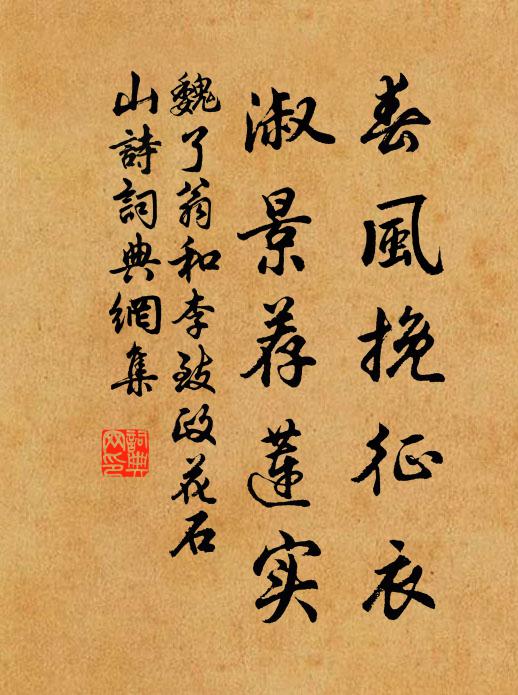 春風挽征衣
淑景荐蓮实
魏了翁和李致政花石
山詩詞典網集
詞典
网印